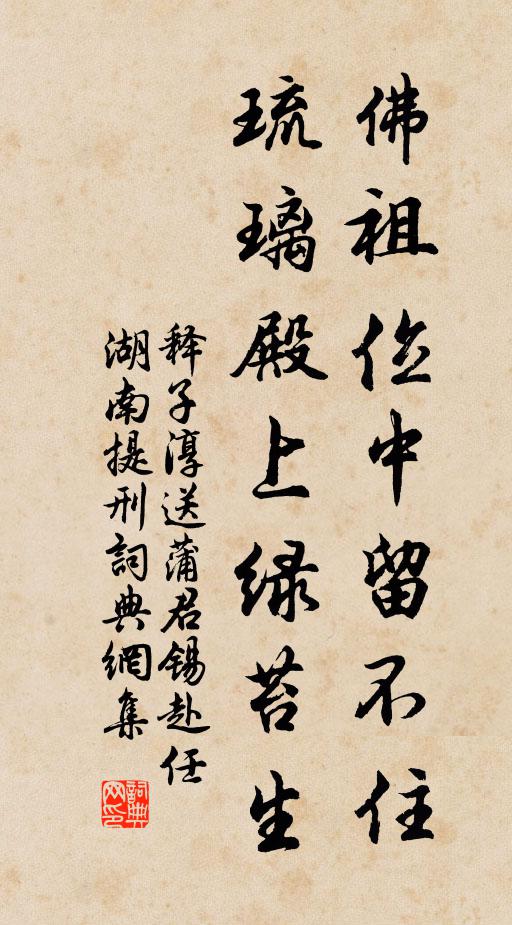 佛祖位中留不住
琉璃殿上绿苔生
释子淳送蒲君锡赴任
湖南提刑詞典網集
詞典网印